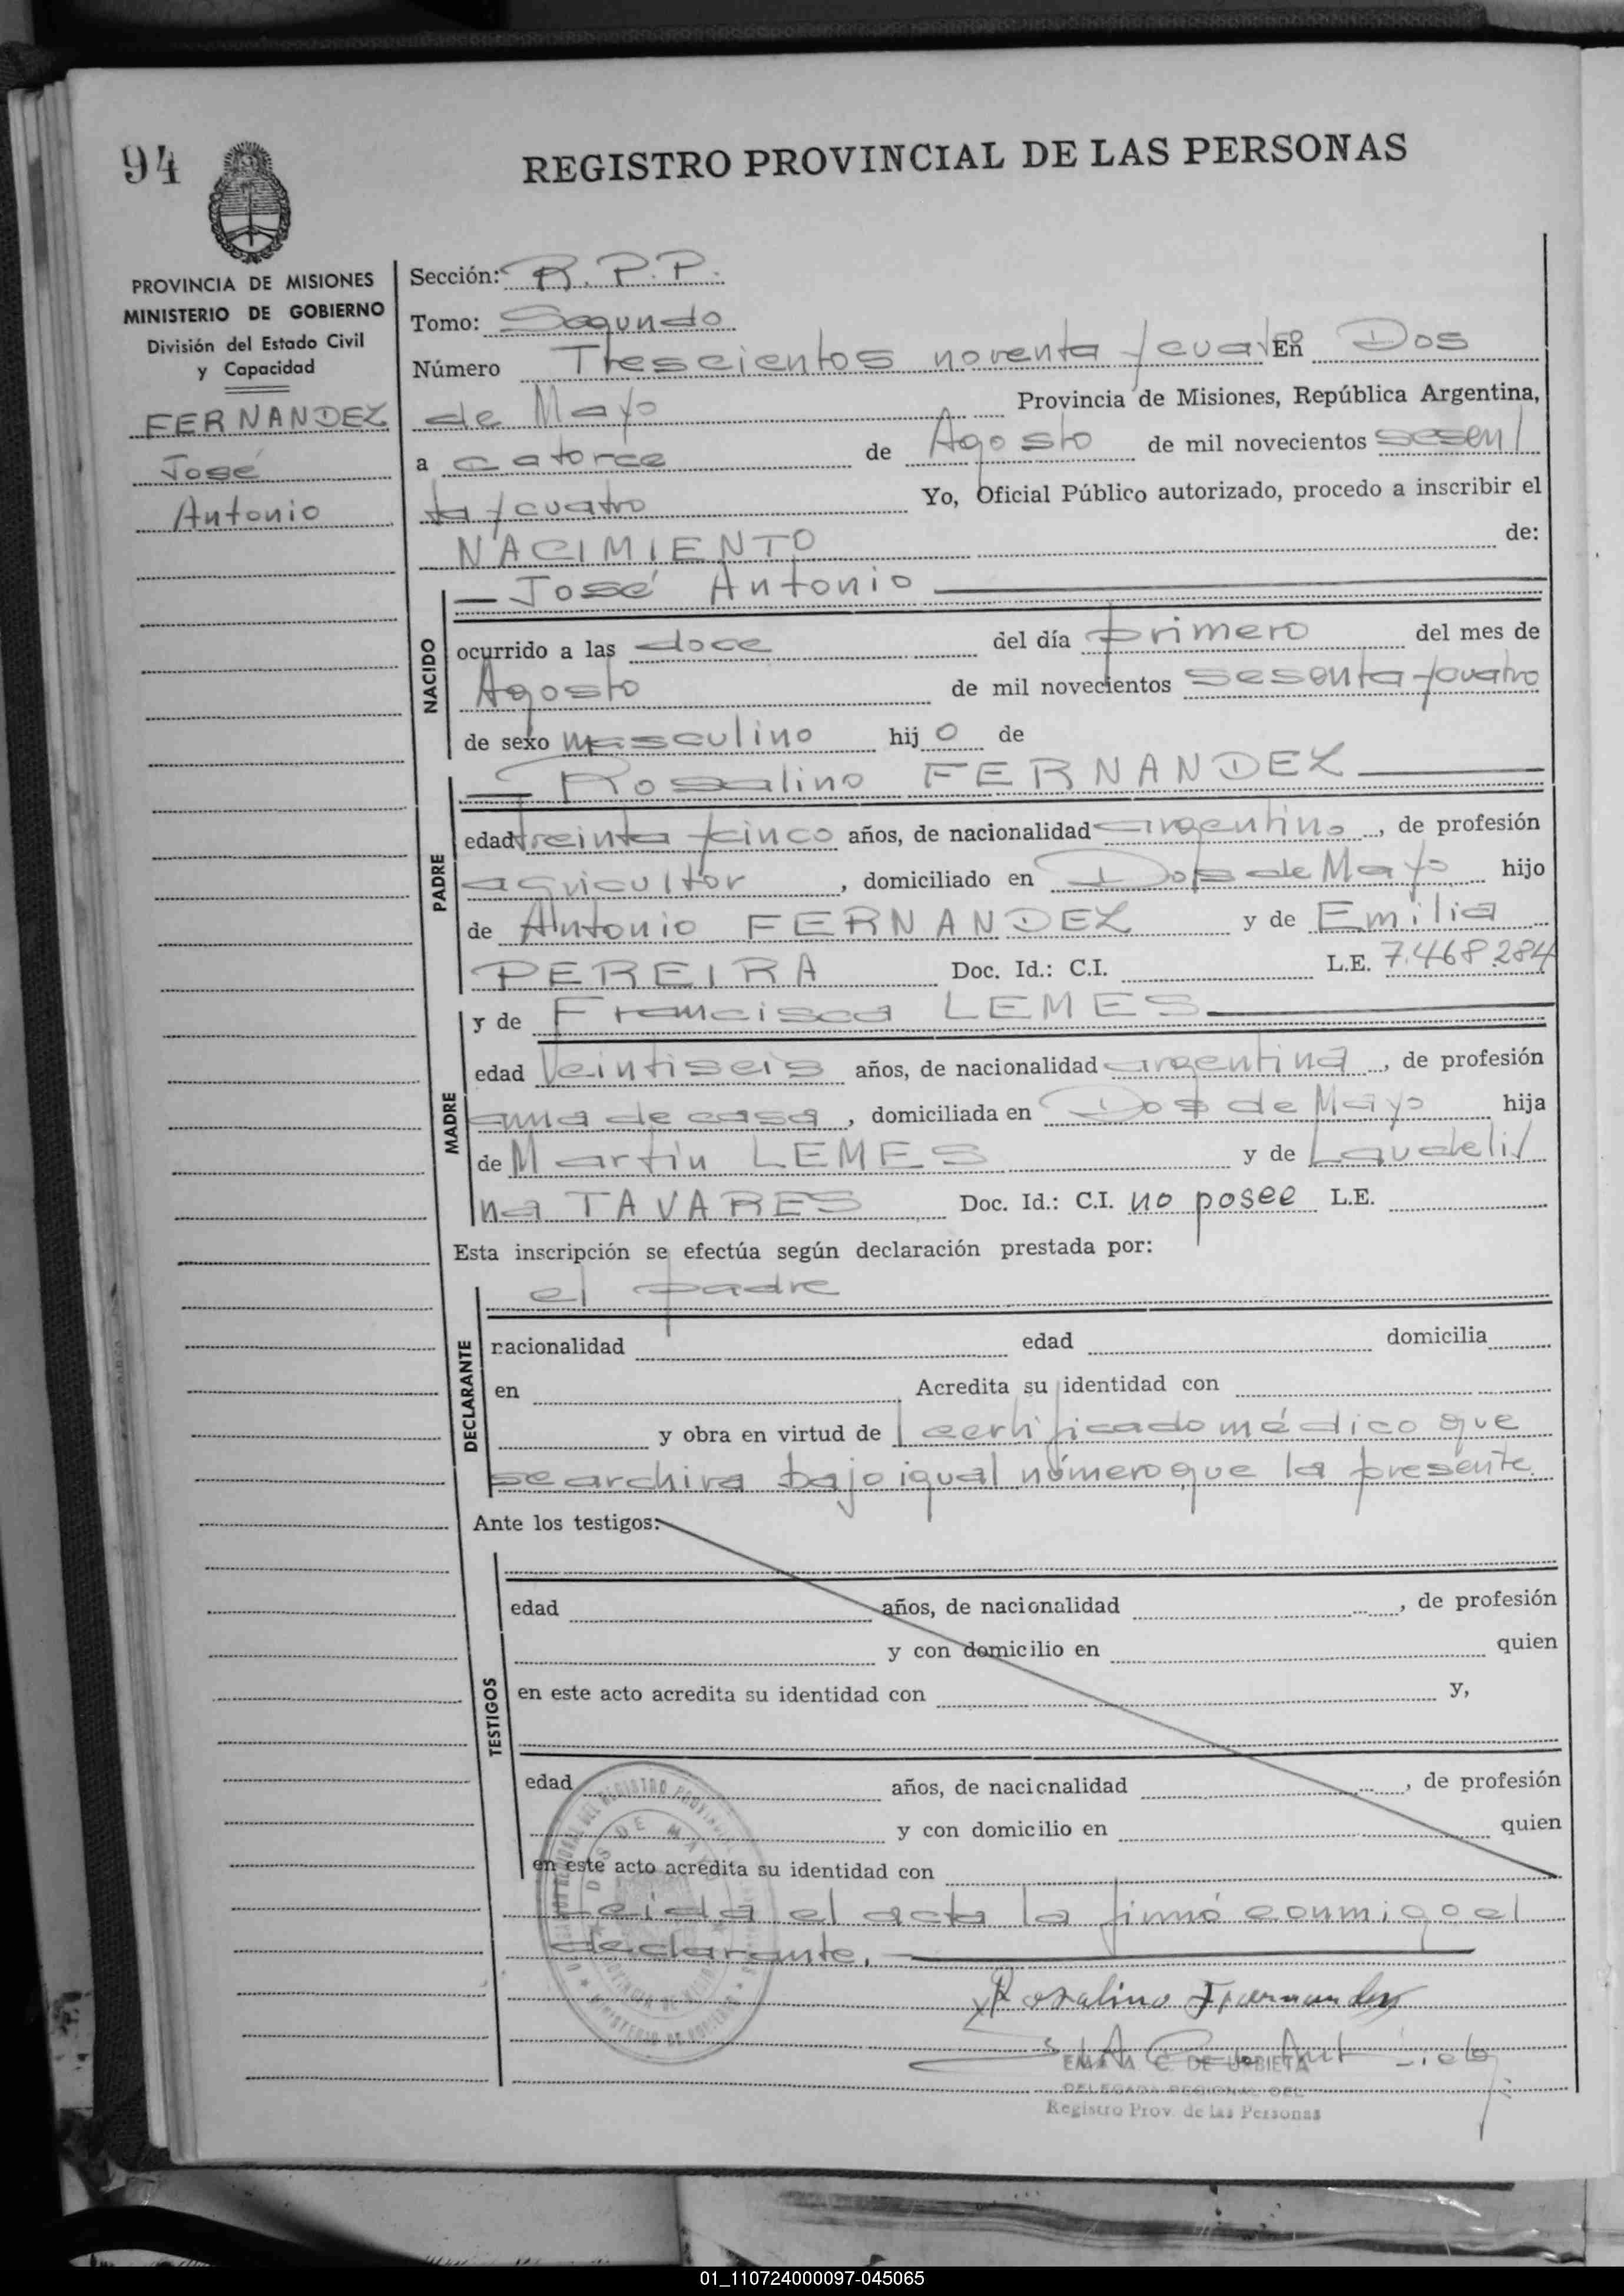 94
REGISTRO PROVINCIAL DE LAS PERSONAS
PROVINCIA DE MISIONES
MINISTERIO DE GOBIERNO
División del Estado Civil
y Capacidad
FERNANDEZ
José
Antonio
Sección: R.P.P.
Tomo: Segundo
Número Trescientos noventa y cuat En Dos
de Mayo Provincia de Misiones, República Argentina,
a catorce de Agosto de mil novecientos sesen/
ta y cuatro Yo, Oficial Público autorizado, procedo a inscribir el
NACIMIENTO de:
NACIDO
José Antonio
ocurrido a las doce del día primero del mes de
Agosto de mil novecientos sesenta y cuatro
de sexo masculino hij o de
PADRE
Rosalino FERNANDEZ
edad treinta y cinco años, de nacionalidad argentino, de profesión
agricultor, domiciliado en Dos de Mayo hijo
de Antonio FERNANDEZ y de Emilia
PEREIRA Doc. Id.: C.I. L.E. 7.468.284
MADRE
y de Francisca LEMES
edad veintiseis años, de nacionalidad argentina, de profesión
ama de casa, domiciliada en Dos de Mayo hija
de Martín LEMES y de Laudeli/
na TAVARES Doc. Id.: C.I. no posee L.E.
Esta inscripción se efectúa según declaración prestada por:
DECLARANTE
el padre
nacionalidad edad domicilia
en Acredita su identidad con
y obra en virtud de certificado médico que
se archiva bajo igual número que la presente
Ante los testigos:
TESTIGOS
edad años, de nacionalidad , de profesión
y con domicilio en quien
en este acto acredita su identidad con y,
edad años, de nacionalidad , de profesión
y con domicilio en quien
en este acto acredita su identidad con
Leida el acta la firmó conmigo el
declarante.
Rosalino Fernandez
C. DE URBIETA
DELEGADA REGIONAL DEL
Registro Prov. de las Personas
DOS DE MAYO
01_110724000097-045065